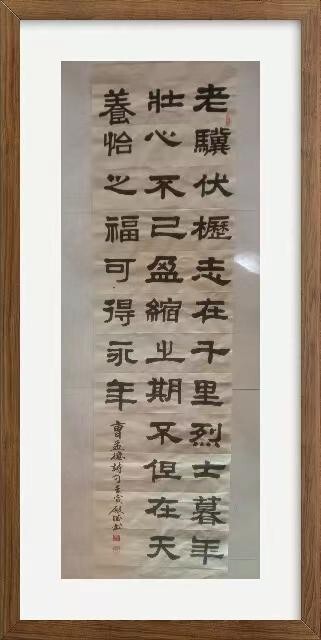 老驥伏櫪志在千里烈士暮年
壯心不已盈縮之期不但在天
養怡之福可得永年
曹孟德詩句壬寅書